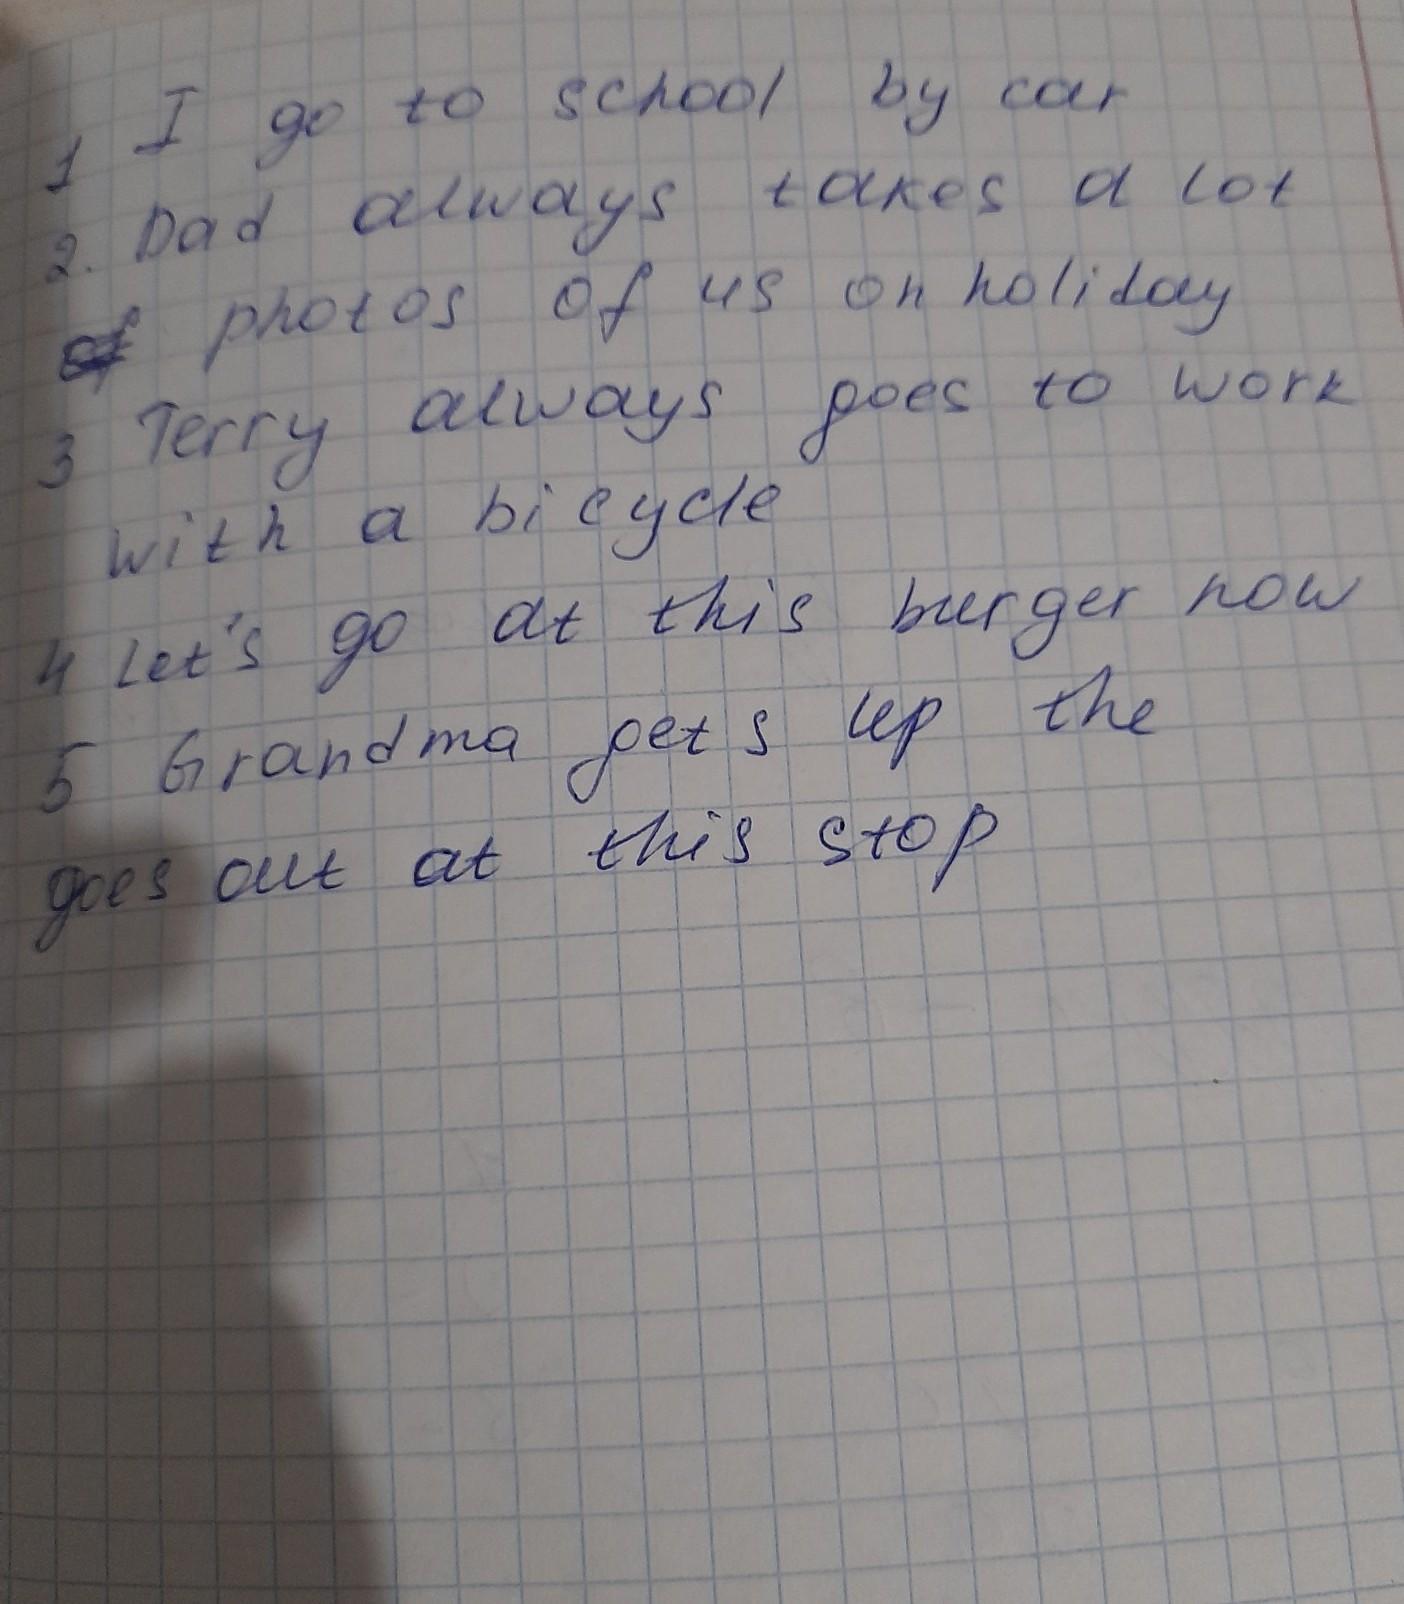 1 I go to school by car
2. Dad always takes a lot
photos of us on holiday
3 Terry always goes to work
with a bicycle
4 Let's go at this burger now
5 Grandma gets up the
goes out at this stop